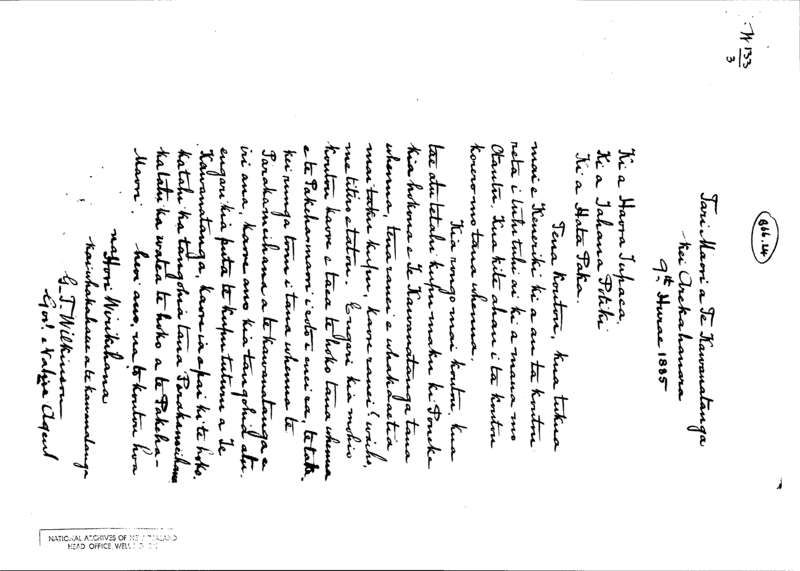 W 133
3
B66.L4
Tari Maori a Te Kawanatanga
Kei Arekahanara
9th Hurae 1885
Ki a Haora Tupaea,
Ki a Tahana Potiki
Ki a Hata Paka.
Tena Koutou, Kua tukua
mai e Keneriki ki a au ta koutou
reta i tuhituhi ai ki a mana mo
Otautu. Kua kite ahau i ta koutou
korero mo taua whenua.
Kia rongo mai koutou, kua
tae atu tetahi kupu maku ki Poneke
kia hokona e Te Kawanatanga taua
whenua, tena ranei e whakaaetia
mai taku kupu, kaore ranei! waiho,
me titiro e tatou. Engari kia mohio
koutou kaore e taea te hoko taua whenua
e te Pakeha maori i roto i enei ra, te take,
kei runga tonu i taua whenua te
Parakameihana a te Kawanatanga e
iri ana, kaore ano kia tangohia atu.
engari kia puta te kupu tuturu a Te
Kawanatanga, kaore ia e pai ki te hoko,
katahi ka tangohia taua Parakameihana
katahi ka watea te hoko a te Pakeha-
Maori. heoi ano, na to koutou hoa
na Hori Wirikihana
Kaiwhakahaere a te Kawanatanga
G. T. Wilkinson
Govt. Native Agent
NATIONAL ARCHIVES OF NEW ZEALAND
HEAD OFFICE, WELLINGTON